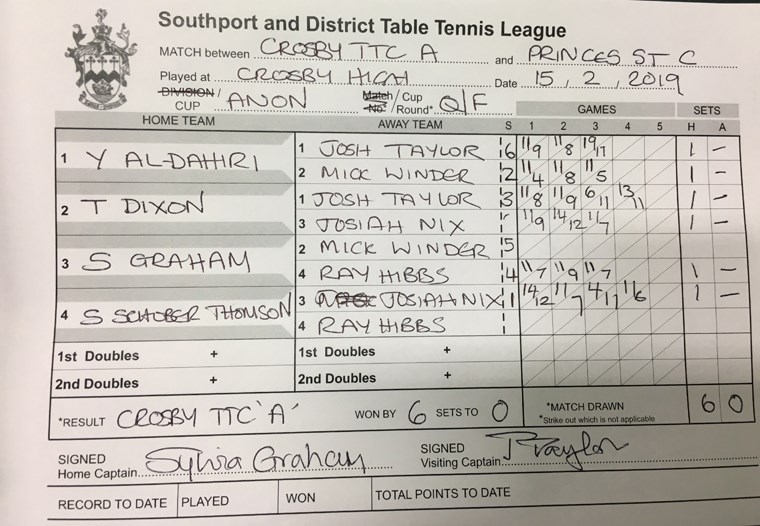 Southport and District Table Tennis League
MATCH between CROSBY TTC A and PRINCES ST C
Played at CROSBY HIGH Date 15, 2, 2019
DIVISION / CUP ANON Match No. / Cup Round* Q/F
GAMES SETS
HOME TEAM AWAY TEAM S 1 2 3 4 5 H A
1 Y AL-DAHIRI
1 JOSH TAYLOR 6 11/9 11/8 19/17 1 –
2 MICK WINDER 2 11/4 11/8 11/5 1 –
2 T DIXON
1 JOSH TAYLOR 3 11/8 11/9 6/11 13/11 1 –
3 JOSIAH NIX 11/9 14/12 11/7 1 –
3 S GRAHAM
2 MICK WINDER 5
4 RAY HIBBS 4 11/7 11/9 11/7 1 –
4 S SCHOBER THOMSON
3 JOSIAH NIX 1 14/12 11/7 4/11 11/6 1 –
4 RAY HIBBS
1st Doubles + 1st Doubles +
2nd Doubles + 2nd Doubles +
*RESULT CROSBY TTC 'A' WON BY 6 SETS TO 0 *MATCH DRAWN 6 0
*Strike out which is not applicable
SIGNED Home Captain Sylvia Graham SIGNED Visiting Captain J Taylor
RECORD TO DATE PLAYED WON TOTAL POINTS TO DATE